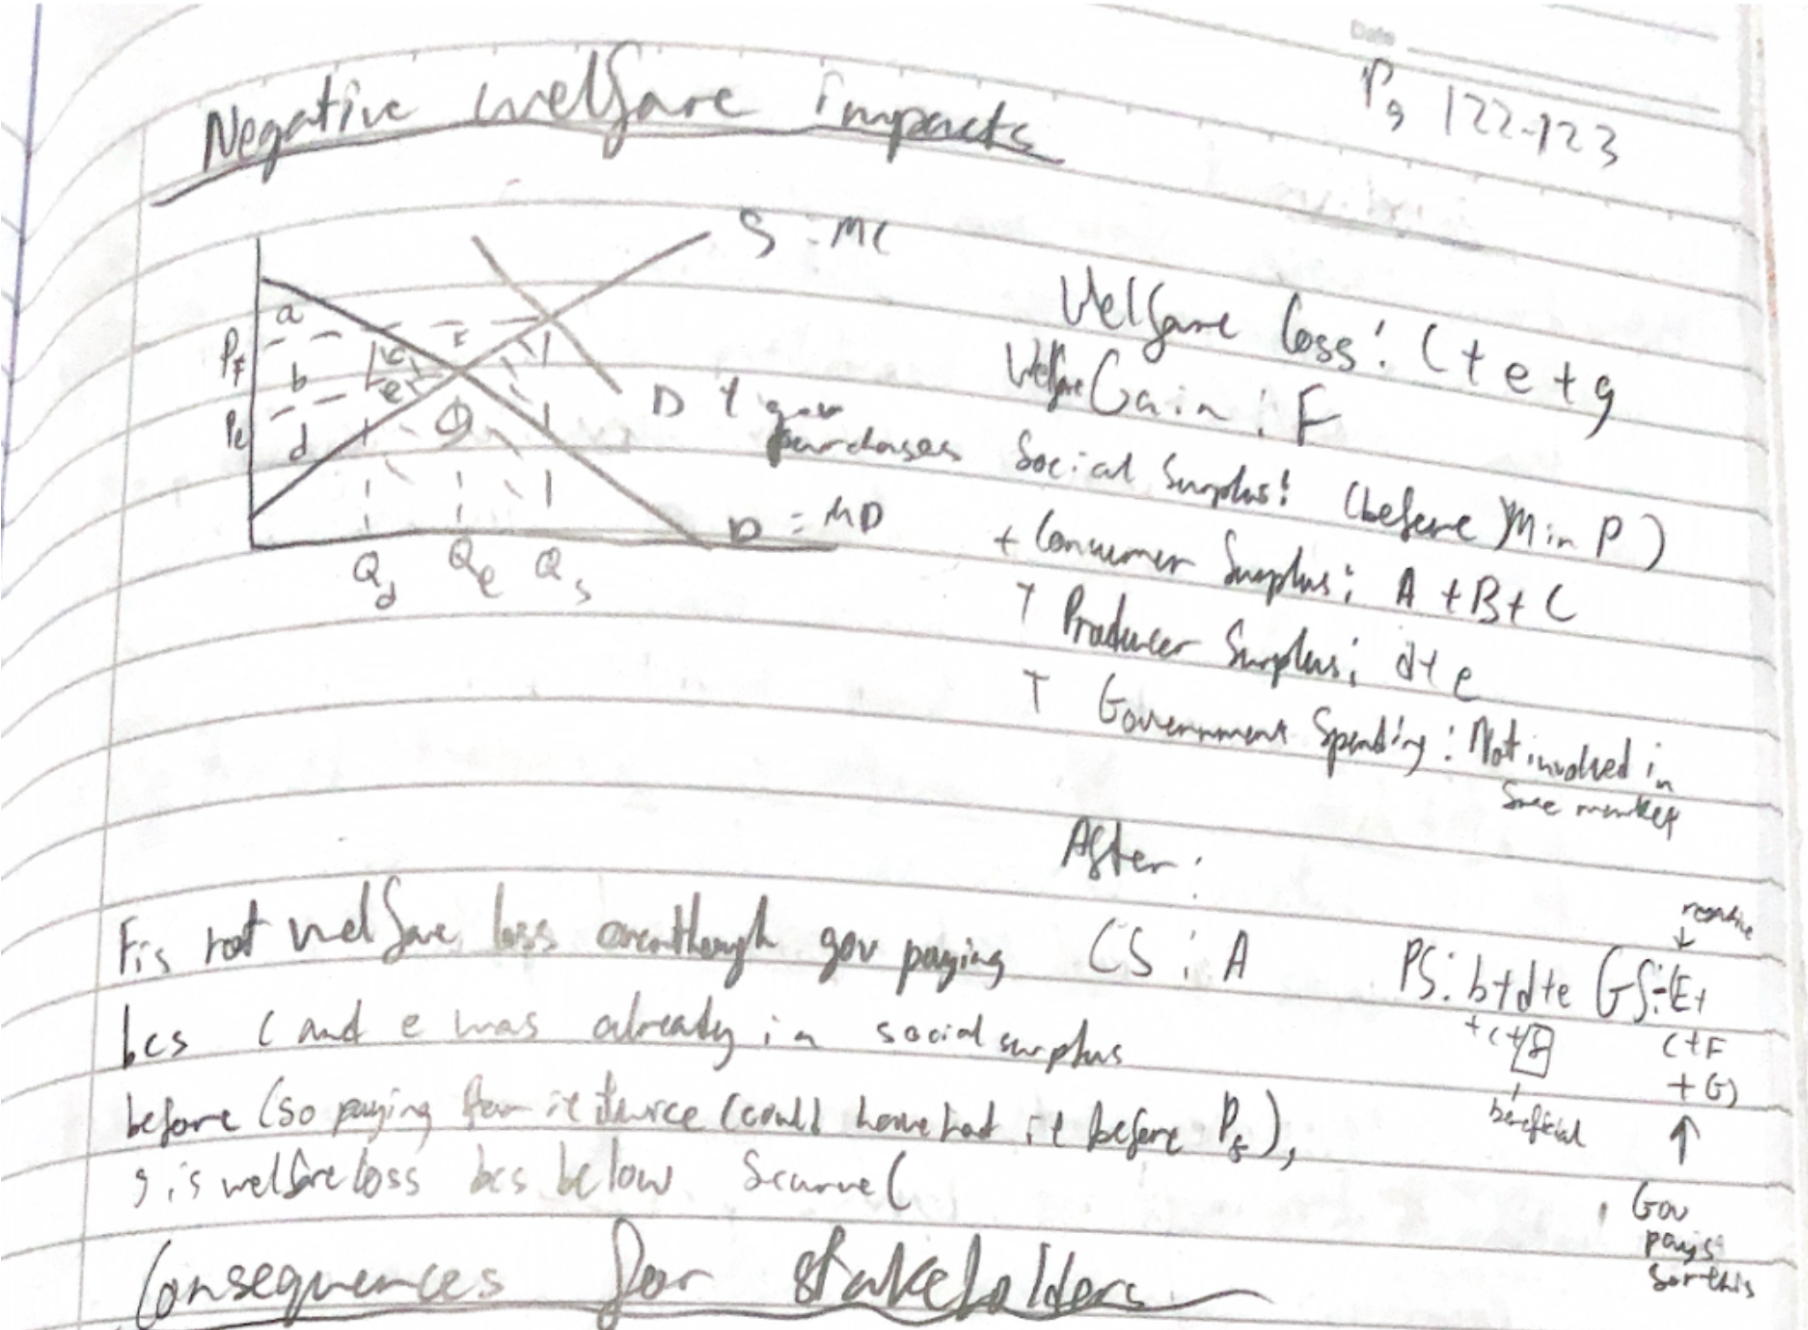 Date
Pg 122-123
Negative welfare impacts
S = MC
a
Pf
c
F
b
e
Pe
d
g
D + gov
purchases
D = MD
Qd Qe Qs
Welfare loss: C + e + g
Welfare Gain: F
Social Surplus: (before Min P)
+ Consumer Surplus: A + B + C
+ Producer Surplus: d + e
+ Government Spending: Not involved in
free market
After:
CS: A PS: b+d+e GS:-(E+
+c+F C+F
+G)
beneficial
Gov
pays
for this
F is not welfare loss eventhough gov paying
bcs C and e was already in social surplus
before (so paying for it twice (could have had it before Pf),
g is welfare loss bcs below S curve (
Consequences for stakeholders